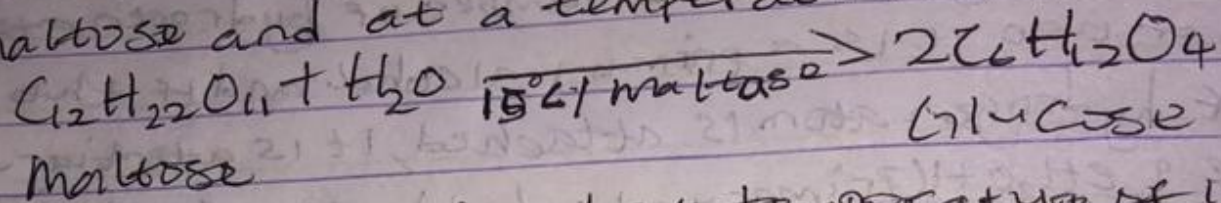 altose and at a
C12H22O11 + H2O 15°C/maltase > 2C6H12O4
Glucose
Maltose